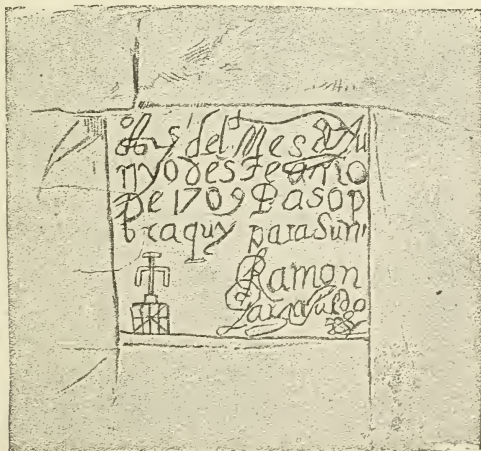 del Mes de Ju
nyo deste año
De 1709 Paso p
or aquy para Suni
Ramon
Garcia Jurado